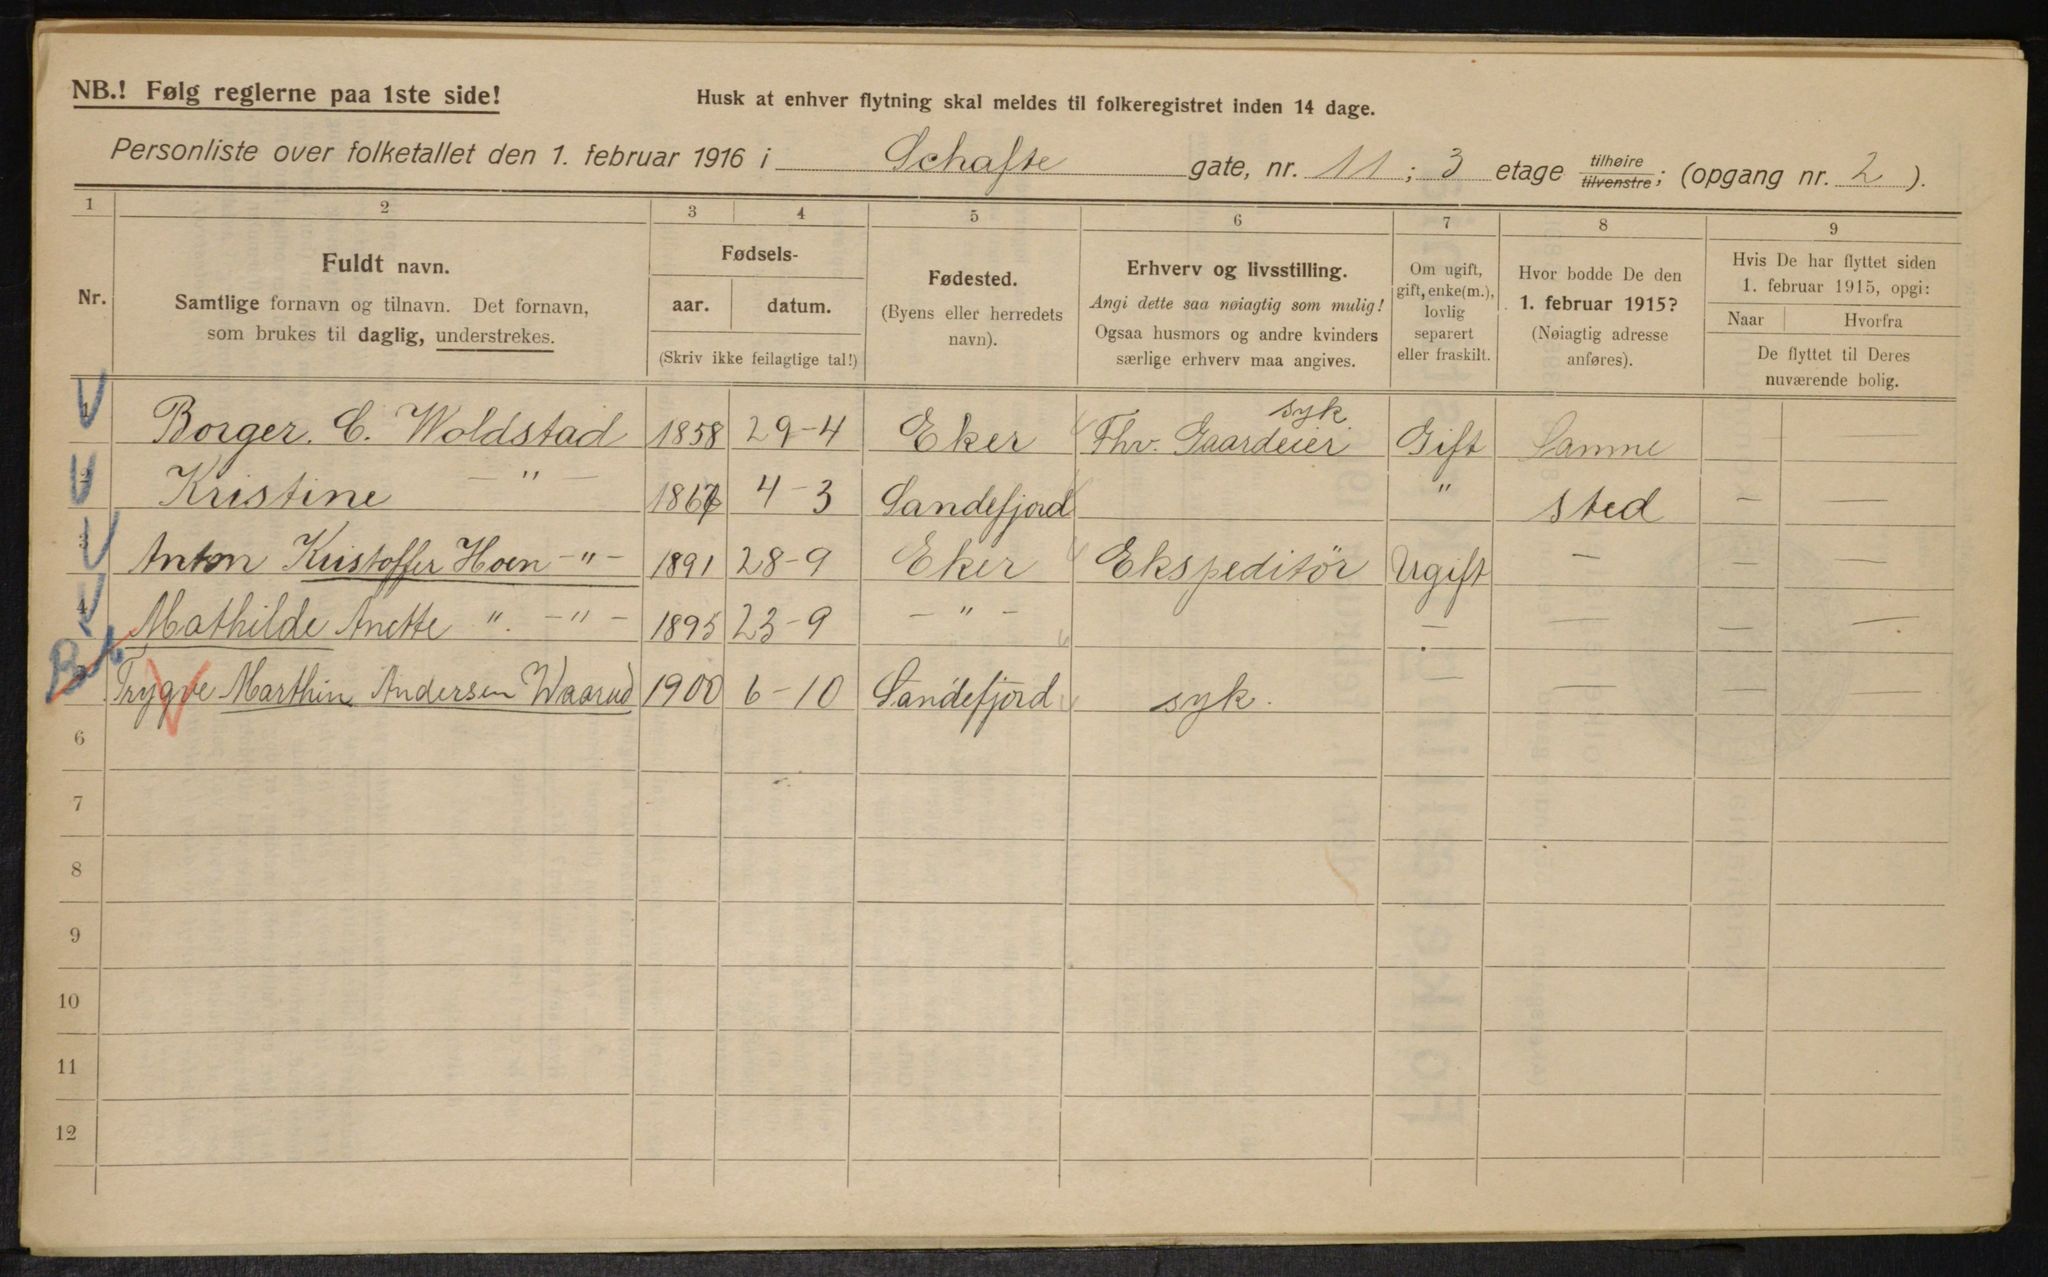 NB.! Følg reglerne paa 1ste side!
Husk at enhver flytning skal meldes til folkeregistret inden 14 dage.
Personliste over folketallet den 1. februar 1916 i Schafte gate, nr. 11; 3 etage tilhøire tilvenstre; (opgang nr. 2).
1 2 3 4 5 6 7 8 9
Nr.
Fuldt navn.
Samtlige fornavn og tilnavn. Det fornavn,
som brukes til daglig, understrekes.
Fødsels-
aar. datum.
(Skriv ikke feilagtige tal!)
Fødested.
(Byens eller herredets
navn).
Erhverv og livsstilling.
Angi dette saa nøiagtig som mulig!
Ogsaa husmors og andre kvinders
særlige erhverv maa angives.
Om ugift,
gift, enke(m.),
lovlig
separert
eller fraskilt.
Hvor bodde De den
1. februar 1915?
(Nøiagtig adresse
anføres).
Hvis De har flyttet siden
1. februar 1915, opgi:
Naar Hvorfra
De flyttet til Deres
nuværende bolig.
1 Borger. C. Woldstad 1858 29-4 Eker Fhv. Gaardeier syk Gift Samme — —
2 Kristine —"— 4-3 Sandefjord " sted — —
3 Anton Kristoffer Hoen -"- 1891 28-9 Eker Ekspeditør Ugift — — —
4 Mathilde Anette ". -"- 1895 23-9 -"- — — — —
Trygve Marthin Andersen Waarud 1900 6-10 Sandefjord syk. — — — —
6
7
8
9
10
11
12